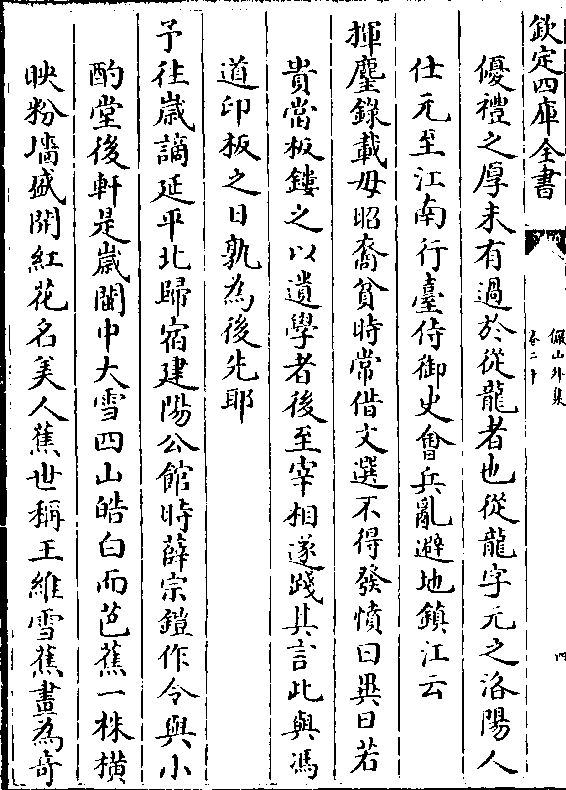 欽定四庫全書
儼山外集
卷二十
四
優禮之厚未有過於從龍者也從龍字元之洛陽人
仕元至江南行臺侍御史會兵亂避地鎮江云
揮麈錄載毋昭裔貧時常借文選不得發憤曰異日若
貴當板鏤之以遺學者後至宰相遂踐其言此與馮
道印板之日孰為後先耶
予往歲謫延平北歸宿建陽公館時薛宗鎧作令與小
酌堂後軒是歲閩中大雪四山皓白而芭蕉一株橫
映粉墻盛開紅花名美人蕉世稱王維雪蕉畫為奇